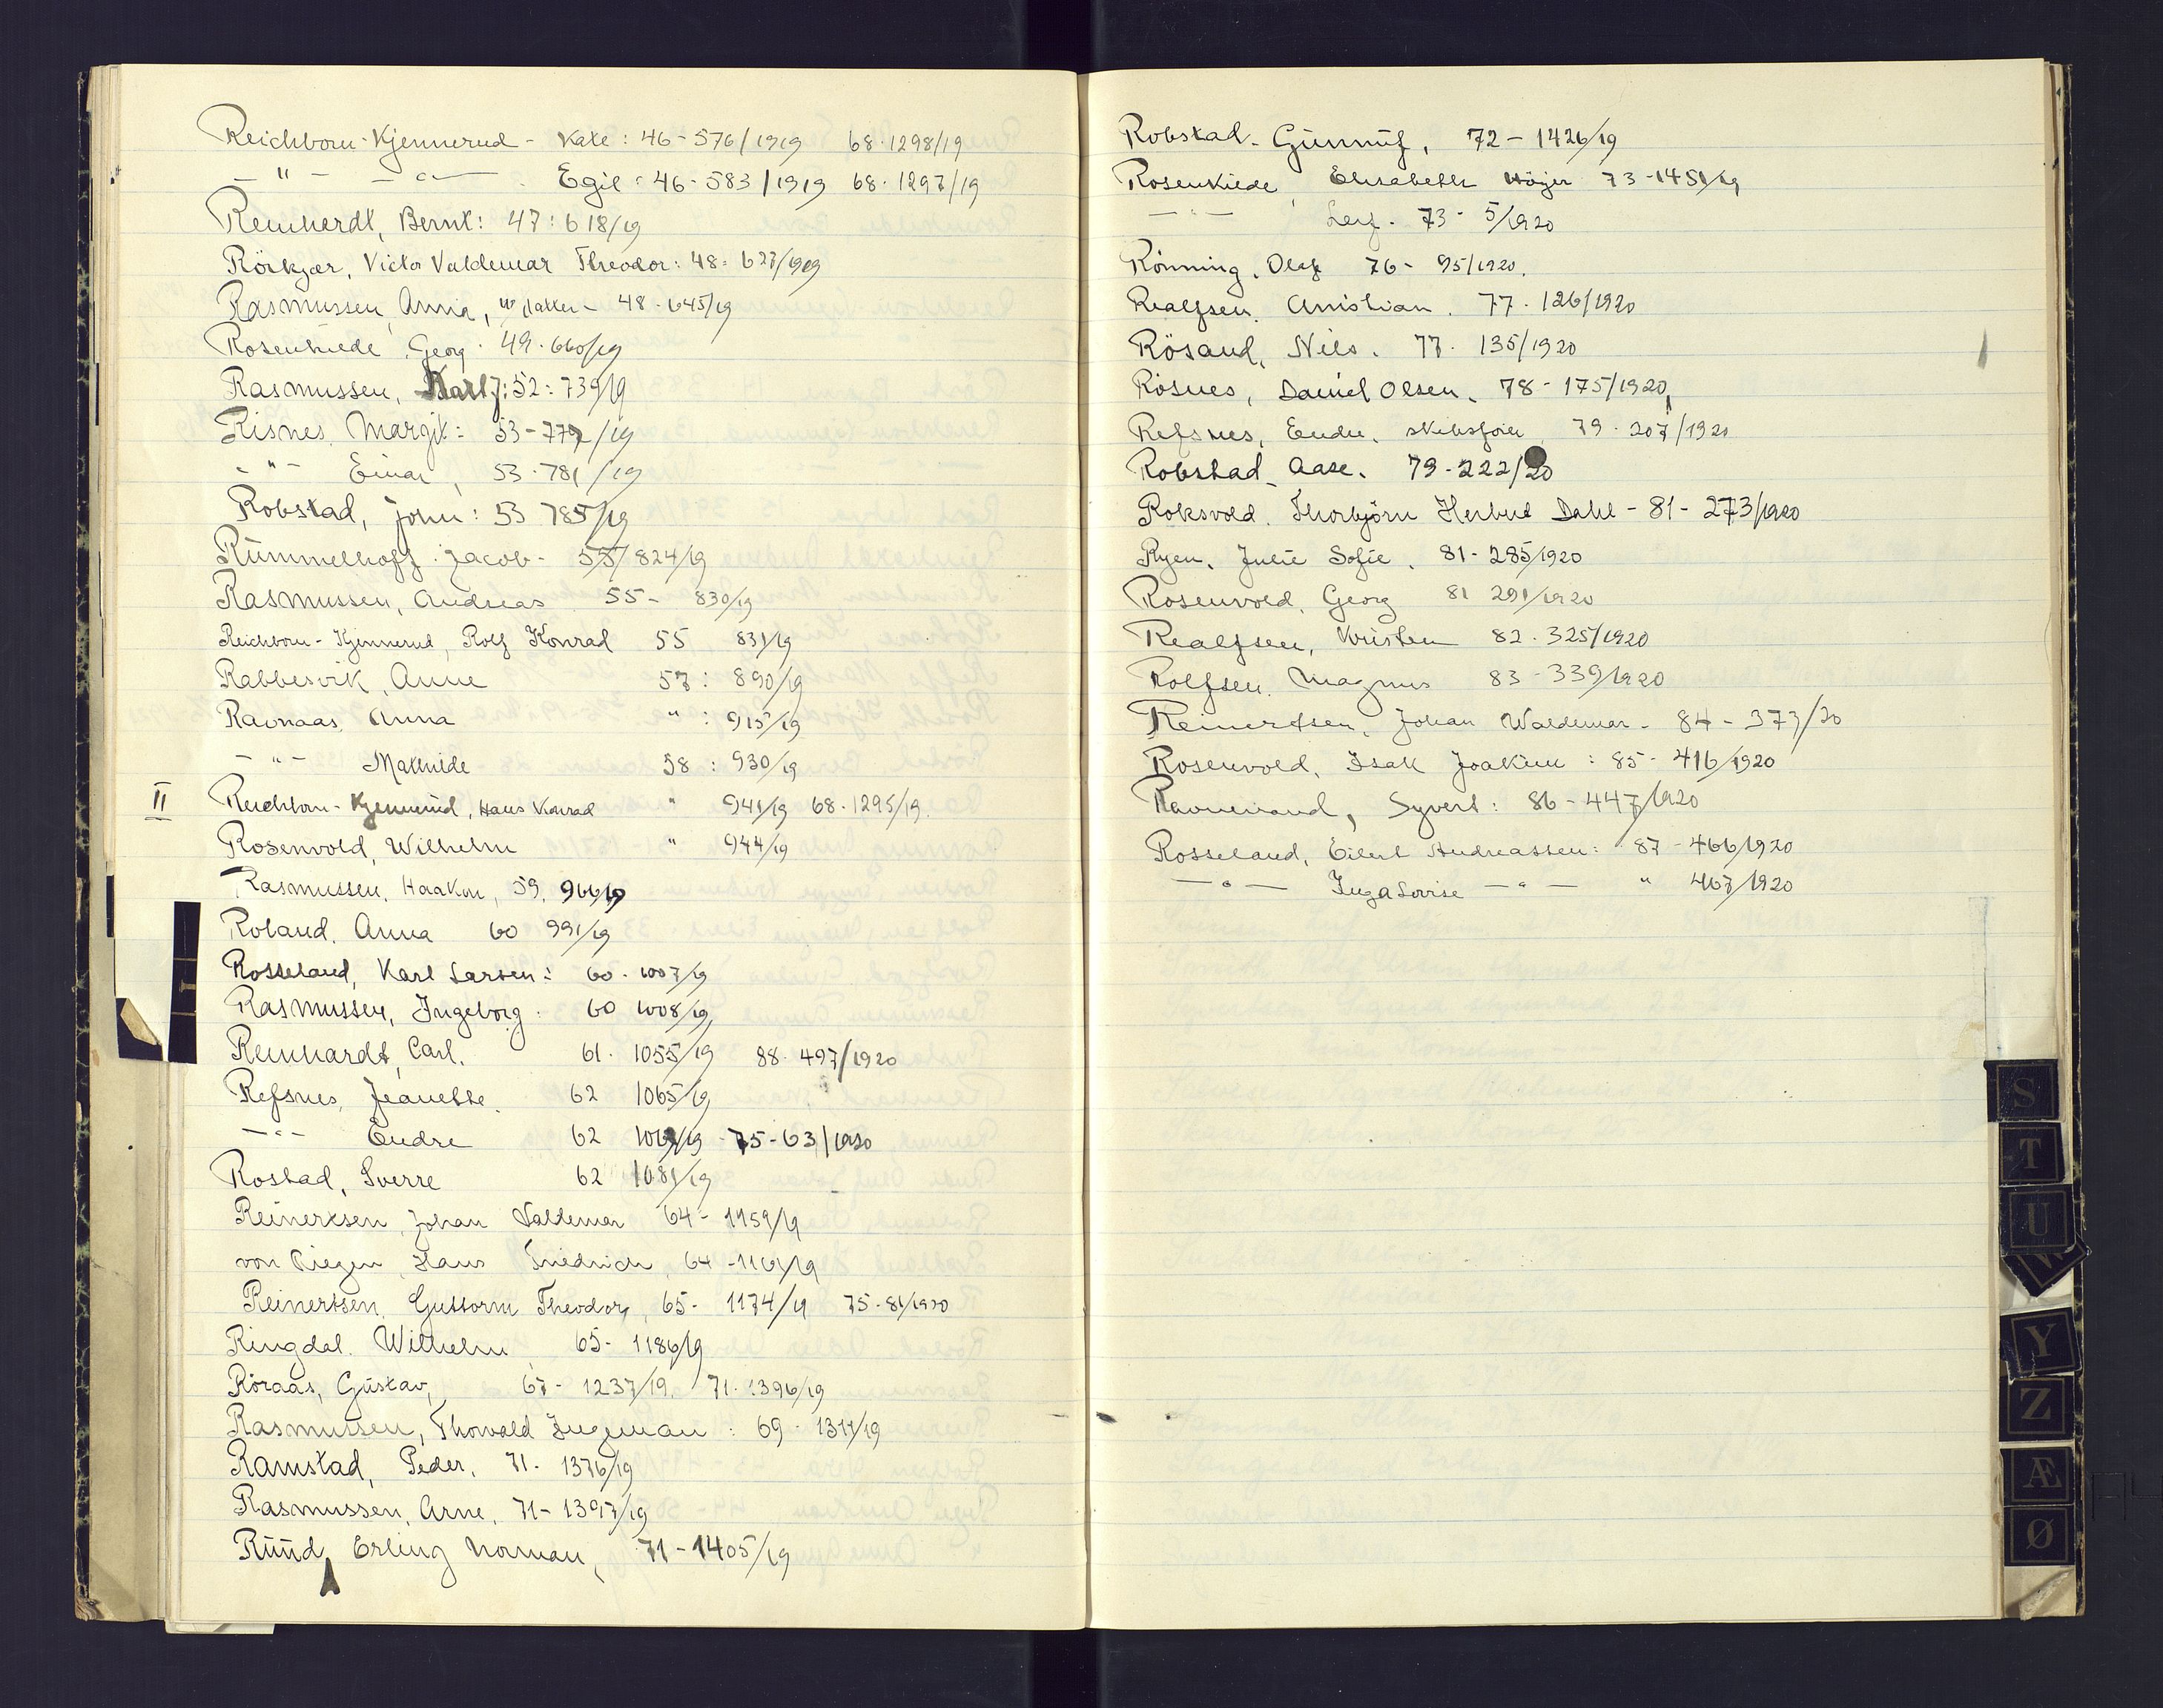 Reichborn-Kjennerud - Kate: 46-576/1919 68-1298/19
- " - - " - Egil: 46-583/1919 68-1297/19
Reinherdt, Bernt: 47: 618/19
Rörkjær, Victor Valdemar Theodor: 48: 627/1919
Rasmussen, Anna, 48-645/19
Rosenkilde, Georg. 49-660/19
Rasmussen, Karl J: 52: 739/19
Risnes, Margit: 53-779/19
- " - Einar, 53-781/19
Robstad, John: 53 785/19
Rümmelhoff. Jacob- 55/824/19
Rasmussen, Andreas 55- 830/19
Reichborn-Kjennerud, Rolf Konrad 55 831/19
Rabbesvik, Anne 57: 890/19
Ravnaas, Anna " : 915/19
- " - Mathilde 58: 930/19
II Reichborn-Kjennerud, Hans Konrad " 941/19 68-1295/19.
Rosenvold, Wilhelm " 944/19
Rasmussen, Haakon, 59. 966/19
Roland. Anna 60 991/19
Rosseland, Karl Larsen: 60- 1007/19
Rasmussen, Ingeborg: 60 1008/19
Reinhardt, Carl. 61- 1055/19 88-497/1920
Refsnes, Jeanette. 62 1065/19
- " - Endre 62 75-63/1920
Rostad, Sverre 62 1081/19
Reinertsen, Johan Valdemar 64- 1159/19
von Riegen, Hans Friedrich, 64-1161/19
Reinertsen, Guttorm Theodor, 65- 1174/19 75-81/1920
Ringdal. Wilhelm 65- 1186/19
Röraas, Gustav, 67- 1237/19. 71-1396/19
Rasmussen, Thorvald Ingeman: 69- 1311/19
Ramstad, Peder, 71- 1376/19
Rasmussen, Arne, 71-1397/19
Rüüd, Erling Norman, 71-1405/19
Robstad- Günnüf, 72-1426/19
Rosenkilde, Elisabeth Höyer 73-1451/19
- " - Leif. 73- 5/1920
Rönning, Olaf 76- 95/1920.
Realfsen, Christian. 77-126/1920
Rösand, Nils. 77- 135/1920
Rösnes, Daniel Olsen. 78-175/1920,
Refsnes, Endre, skibsfører 79-207/1920
Robstad- Aase. 79-222/20
Roksvold, Thorbjörn Herbert Dahl-81-273/1920
Ryen, Julie Sofie. 81-285/1920
Rosenvold, Georg 81 291/1920
Realfsen, Kristen 82-325/1920
Rolfsen. Magnus 83-339/1920
Reinertsen, Johan Waldemar- 84-373/20
Rosenvold, Isak Joakim: 85-416/1920
Syvert: 86-447/1920
Rosseland, Eilert Andreassen: 87-466/1920
- " - Inga Lovise - " - " 467/1920
S
T
U
W
Y
Z
Æ
Ø